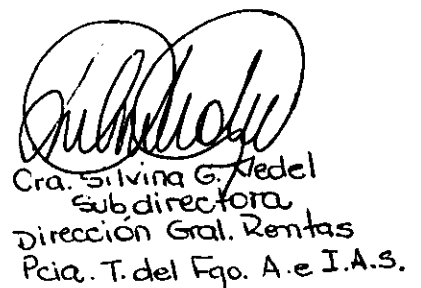 Cra. Silvina G. Medel
Subdirectora
Dirección Gral. Rentas
Pcia. T. del Fgo. A. e I.A.S.